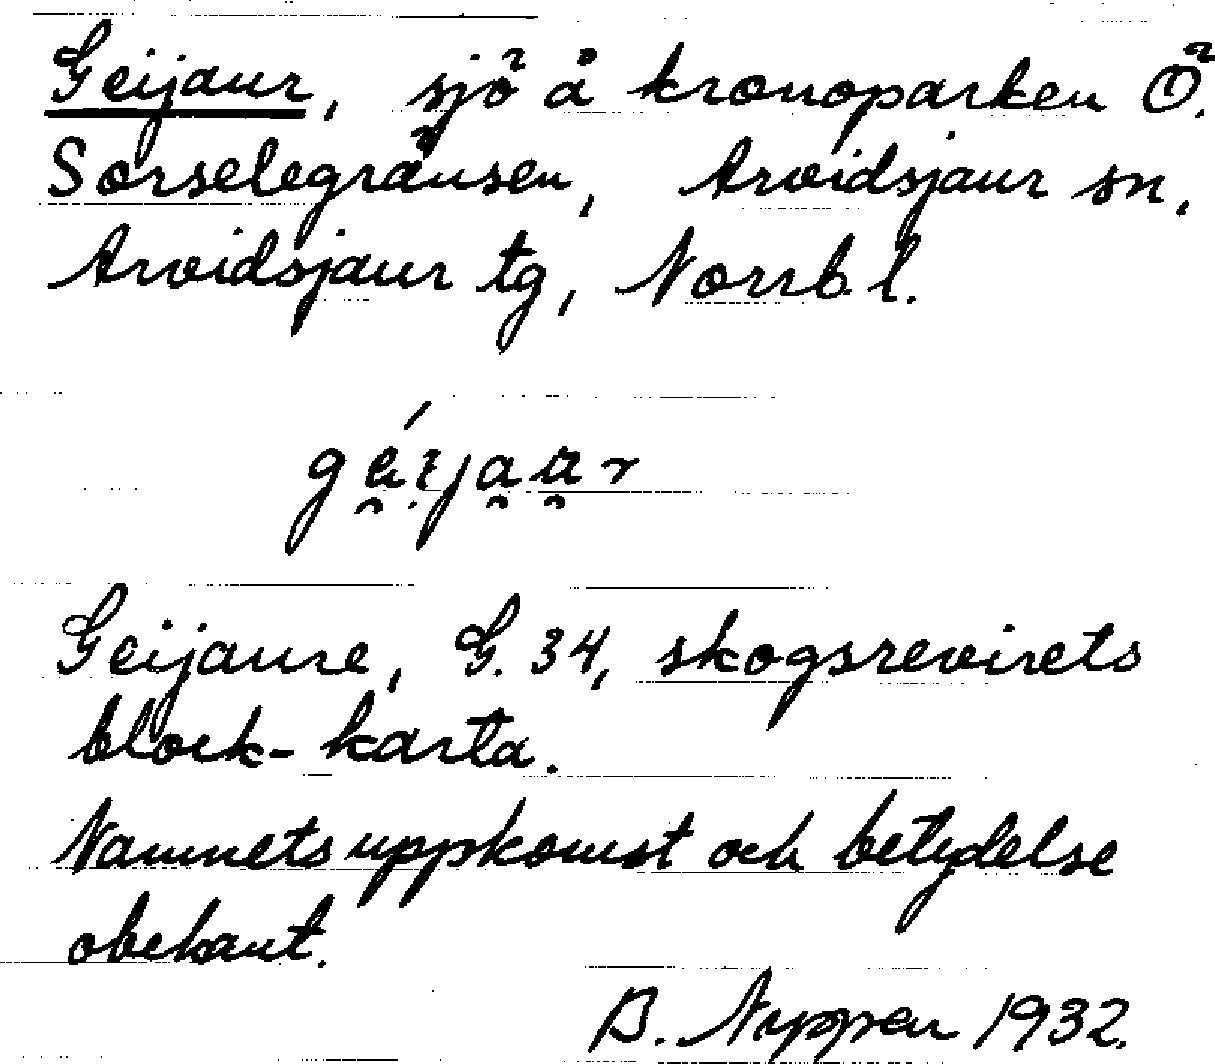 Geijaur, sjö å kronoparken Ö.
Sorselegränsen, Arvidsjaur sn,
Arvidsjaur tg, Norrb. l.
Geijaure, G. 34, skogsrevirets
block-karta.
Namnets uppkomst och betydelse
obekant.
B. Nyppen 1932.